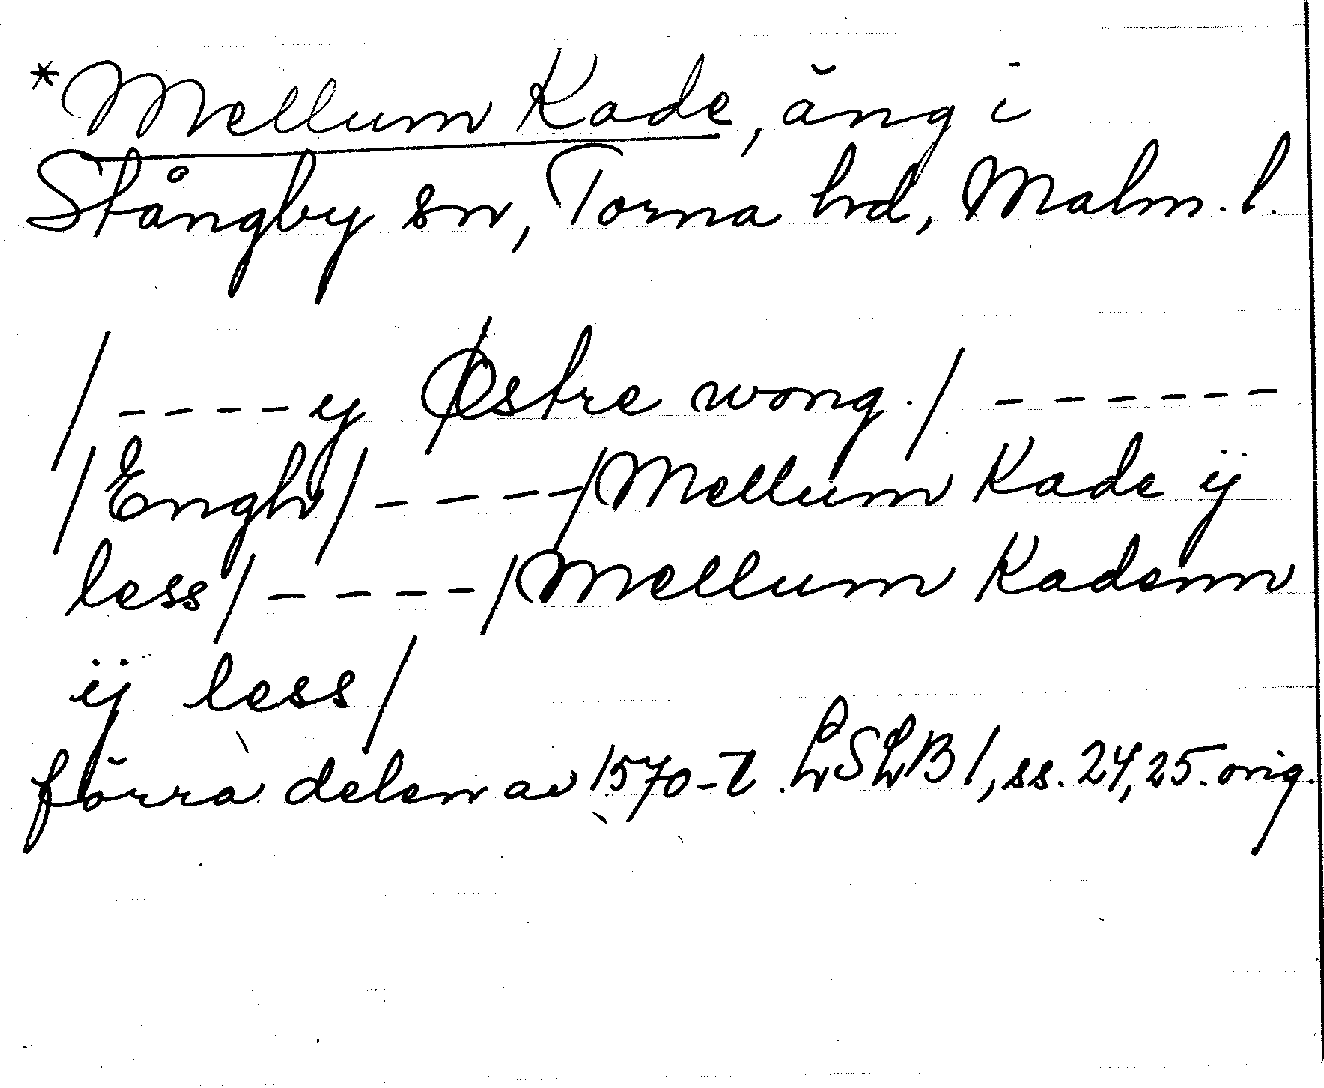 *Mellum Kade, äng i
Stångby sn, Torna hd, Malm. l.
/----y Østre wong./------
/Engh/----/Mellum Kade ij
less/----/Mellum Kadenn
ij less/
förra delen av 1570-t. LSLB 1, ss. 24, 25. orig.